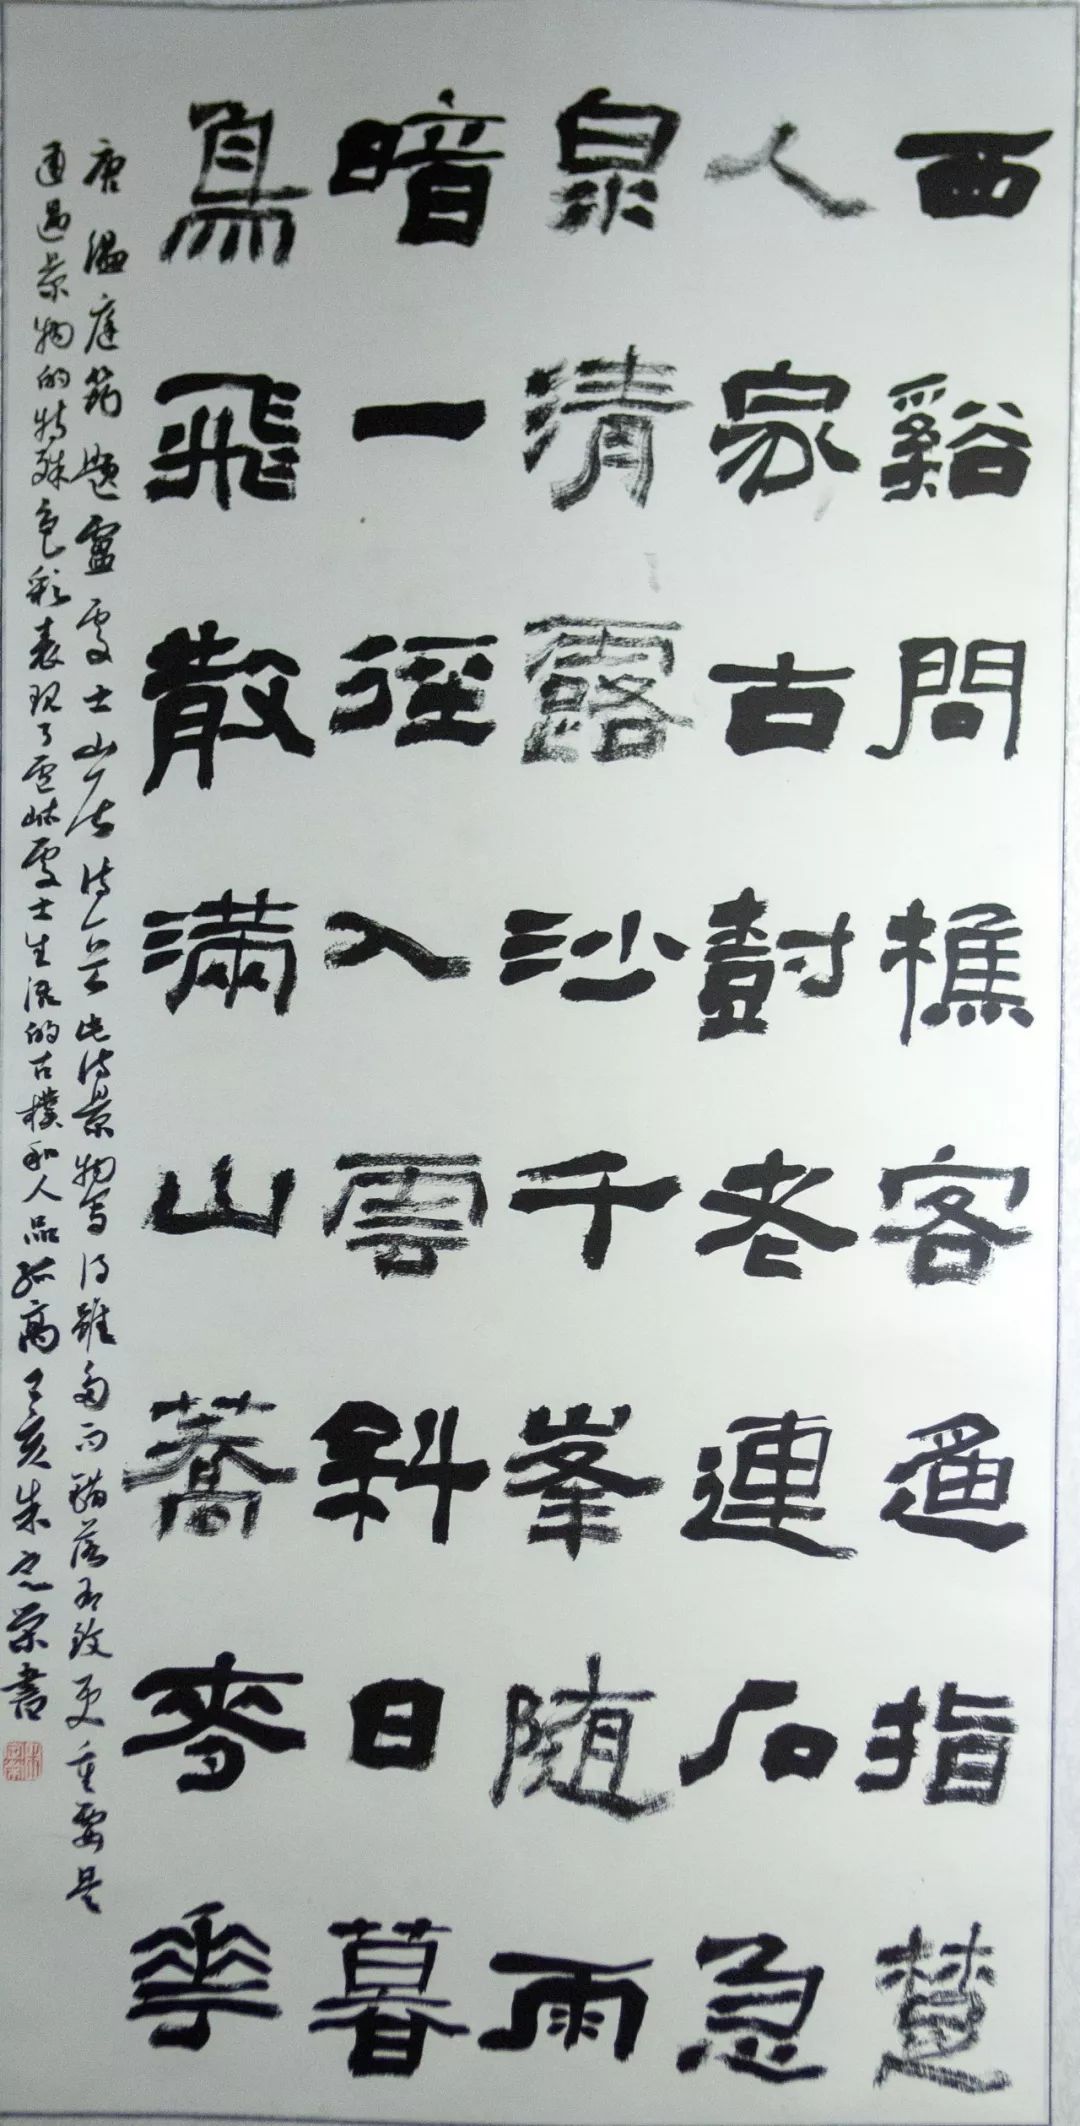 西谿問樵客遥指楚
人家古尌老連石急
泉清露沙千峯随雨
暗一徑入雲斜日暮
鳥飛散滿山蕎麥花
唐温庭筠題盧處士山居诗一首此诗景物写得雖多而錯落有致更重要是
通過景物的特殊色彩表现了盧岵處士生活的古樸和人品孤高己亥朱荣書